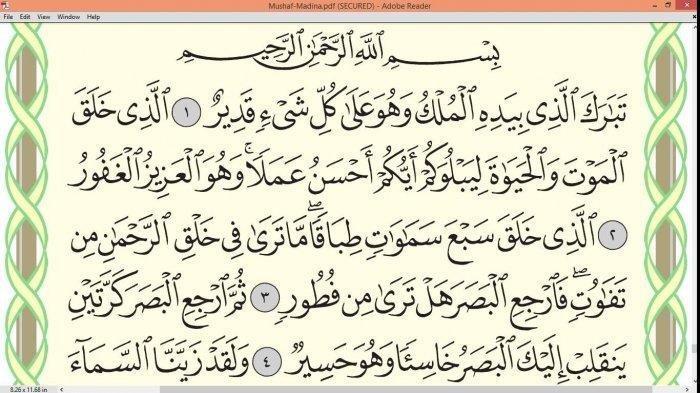 Mushaf-Madina.pdf (SECURED) - Adobe Reader
File Edit View Window Help
بِسْمِ ٱللَّهِ ٱلرَّحْمَٰنِ ٱلرَّحِيمِ
تَبَٰرَكَ ٱلَّذِى بِيَدِهِ ٱلْمُلْكُ وَهُوَ عَلَىٰ كُلِّ شَىْءٍ قَدِيرٌ ١ ٱلَّذِى خَلَقَ
ٱلْمَوْتَ وَٱلْحَيَوٰةَ لِيَبْلُوَكُمْ أَيُّكُمْ أَحْسَنُ عَمَلًا ۚ وَهُوَ ٱلْعَزِيزُ ٱلْغَفُورُ
٢ ٱلَّذِى خَلَقَ سَبْعَ سَمَٰوَٰتٍ طِبَاقًا ۖ مَّا تَرَىٰ فِى خَلْقِ ٱلرَّحْمَٰنِ مِن
تَفَٰوُتٍ ۖ فَٱرْجِعِ ٱلْبَصَرَ هَلْ تَرَىٰ مِن فُطُورٍ ٣ ثُمَّ ٱرْجِعِ ٱلْبَصَرَ كَرَّتَيْنِ
يَنقَلِبْ إِلَيْكَ ٱلْبَصَرُ خَاسِئًا وَهُوَ حَسِيرٌ ٤ وَلَقَدْ زَيَّنَّا ٱلسَّمَآءَ
8.26 x 11.68 in